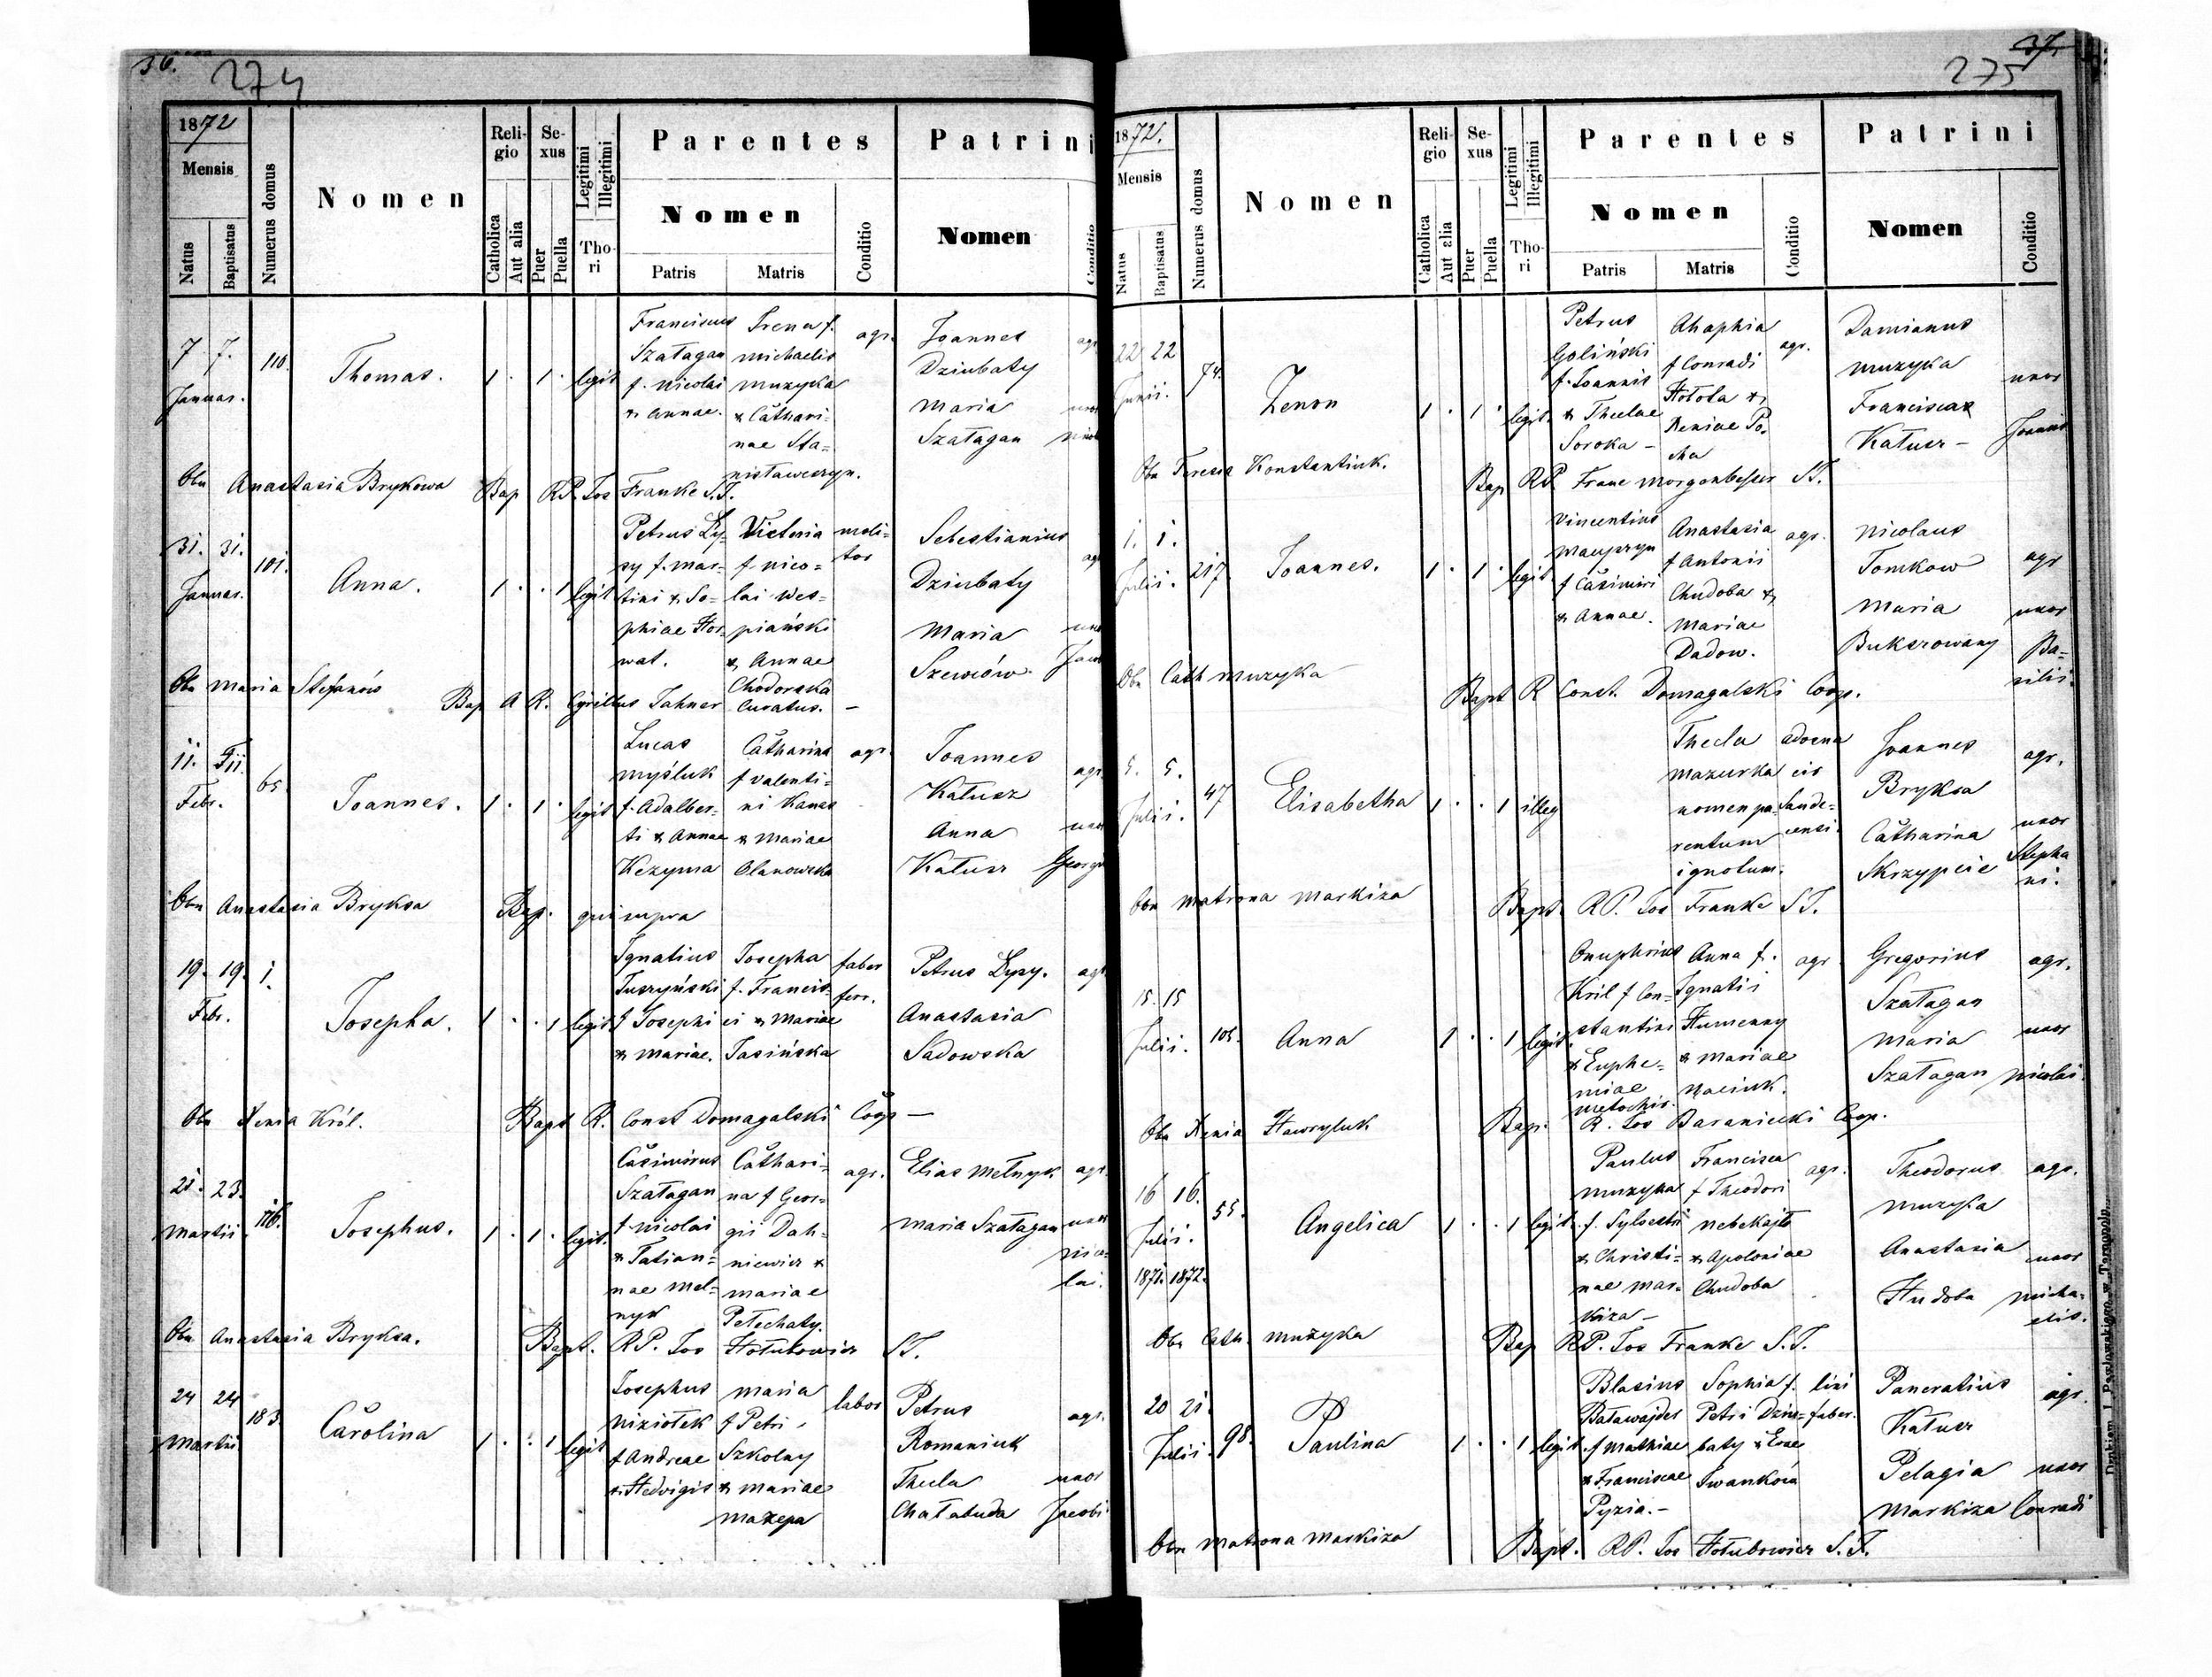 36.
274
1872
Mensis
Natus
Baptisatus
Numerus domus
Nomen
Religio
Catholica
Aut alia
Sexus
Puer
Puella
Legitimi
Illegitimi
Thori
Parentes
Nomen
Patris
Matris
Conditio
Patrini
Nomen
Conditio
7 7. Januar. 110. Thomas. 1 . 1 . legit
Franciscus
Szałagan
f. Nicolai
& Annae.
Irena f.
Michaelis
Muzyka
& Cathari=
nae Sta=
nisławczyn.
agr.
Joannes
Dziubaty
Maria
Szałagan
agr.
Obn Anastasia Brykowa Bap RP. Jos Franke S.J.
31. 31. Januar. 101. Anna. 1 . . 1 legit
Petrus Ły=
sy f. Mar=
tini & So=
phiae Hor=
wat.
Victoria
f. Nico=
lai Wes=
piański
& Annae
Chodorska
moli=
tor
Sebestianius
Dziubaty
Maria
Szewców.
Obn Maria Stefanów Bap A R. Cyrillus Jahner Curatus. —
11. 11. Febr. 65. Joannes. 1 . 1 . legit
Lucas
Myśluk
f. Adalber=
ti & Annae
Kezyma
Catharina
f Valenti=
ni Kanas
& Mariae
Olanowska
agr.
Joannes
Kałusz
Anna
Kałusz
agr.
uxor
Georgii
Obn Anastasia Bryksa Bap. qui supra
19. 19. Febr. 1. Josepha. 1 . . 1 legit
Ignatius
Tuszyński
f Josephi
& Mariae.
Josepha
f. Francis=
ci & Mariae
Jasińska
faber
ferr.
Petrus Łysy.
Anastasia
Sadowska
agr
Obn Xenia Król. Bapt R. Const Domagalski Coop —
21. 23. Martii 116. Josephus. 1 . 1 . legit.
Casimirus
Szałagan
f Nicolai
& Tatian=
nae Mel=
nyk
Cathari=
na f Geor=
gii Dah=
niewicz &
Mariae
Petechaty.
agr.
Elias Mełnyk
Maria Szałagan
agr.
uxor
Nico=
lai.
Obn Anastasia Bryksa. Bapt. RP. Jos Hołubowicz SJ.
24 24 Martii 183. Carolina 1 . . 1 legit
Josephus
Niziołek
f Andreae
& Hedvigis
Maria
f Petri
Szkolny
& Mariae
Mazepa
labor
Petrus
Romaniuk
Thecla
Chałabuda
agr.
uxor
Jacobi
37.
275
1872.
Mensis
Natus
Baptisatus
Numerus domus
Nomen
Religio
Catholica
Aut alia
Sexus
Puer
Puella
Legitimi
Illegitimi
Thori
Parentes
Nomen
Patris
Matris
Conditio
Patrini
Nomen
Conditio
22 22 Junii. 74. Zenon 1 . 1 . legit.
Petrus
Goliński
f. Joannis
& Theclae
Soroka —
Ahaphia
f Conradi
Hołota &
Xeniae Po=
cha
agr.
Damianus
Muzyka
Francisca
Kałusz —
uxor
Joannis
Obn Teresia Konstantiuk. Bap RP. Franc Morgenbesser SJ.
1. 1. Julii. 217 Joannes. 1 . 1 . legit
Vincentius
Maczyn
f Casimiri
& Annae.
Anastasia
f Antonii
Chudoba &
Mariae
Dadow.
agr.
Nicolaus
Tomkow
Maria
Bukszowany
agr
uxor
Ba=
silii.
Obn Cath Muzyka Bapt R Const. Domagalski Coop.
5. 5. Julii. 47 Elisabetha 1 . . 1 illeg
Thecla
Mazurka
nomen pa=
rentum
ignotum.
advena
cis
Sande=
censi.
Joannes
Bryksa
Catharina
Skrzypcie
agr.
uxor
Stepha
ni.
Obn Matrona Markiza Bapt. RP. Jos Franke SJ.
15. 15 Julii. 105. Anna 1 . . 1 legit.
Onuphrius
Król f Con=
stantini
& Euphe=
miae
Metochir.
Anna f.
Ignatii
Humenny
& Mariae
Maciuk.
agr
Gregorius
Szałagan
Maria
Szałagan
agr.
uxor
Nicolai
Obn Xenia Hawryluk Bap. R. Jos Baraniecki Coop.
16 16. Julii. 1871. 1872. 55. Angelica 1 . . 1 legit.
Paulus
Muzyka
f. Sylvestri
& Christi=
nae Mar=
kiza —
Francisca
f Theodori
Nebekajło
& Apoloniae
Chudoba
agr.
Theodorus
Muzyka
Anastasia
Hudoba
agr.
uxor
Micha=
elis.
Obn Cath. Muzyka Bap RP. Jos Franke S.J.
20 21. Julii. 98. Paulina 1 . . 1 legit.
Blasius
Baławajder
f Mathiae
& Franciscae
Pyzia. —
Sophia f.
Petri Dziu=
baty & Evae
Iwankowa
lini
faber.
Pancratius
Kałusz
Pelagia
Markiza
agr.
uxor
Conradi
Obn Matrona Markiza Bapt. RP. Jos Hołubowicz S.J.
Drukiem J. Pawłowskiego w Tarnopolu.